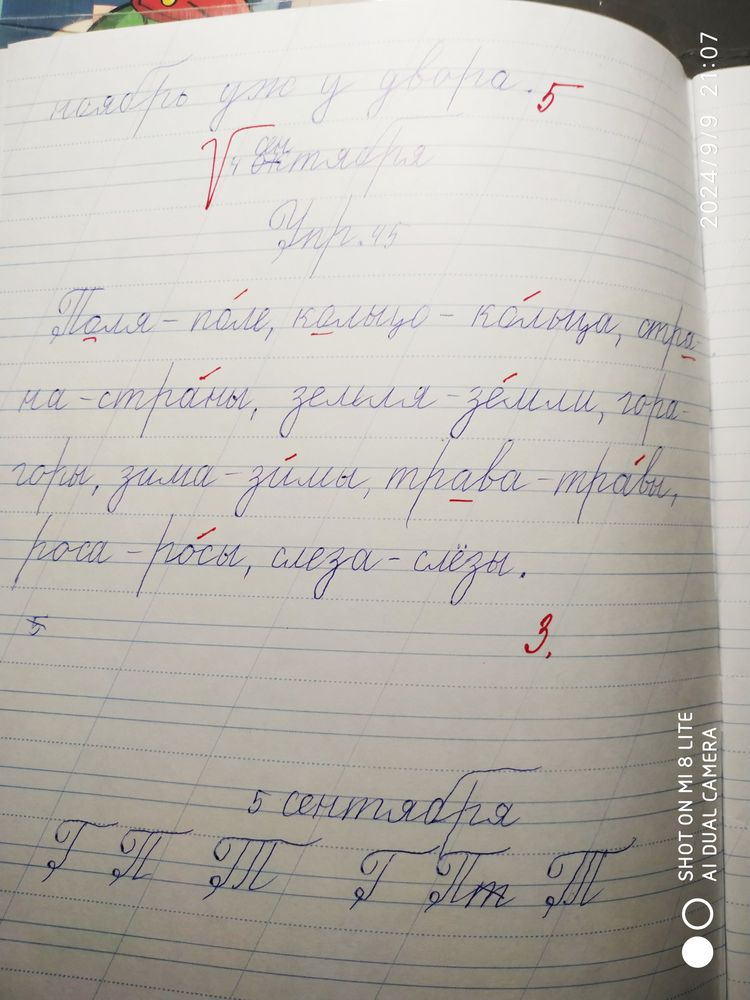 ноябрь уж у двора. 5
сен
4 октября
Упр. 45
Поля - по́ле, кольцо - ко́льца, стра-
на - стра́ны, земля - зе́мли, гора -
горы, зима - зи́мы, трава - тра́вы,
роса - ро́сы, слеза - слёзы.
5
3.
5 сентября
Г П Т Г Пт Т
2024/9/9 21:07
SHOT ON MI 8 LITE
AI DUAL CAMERA